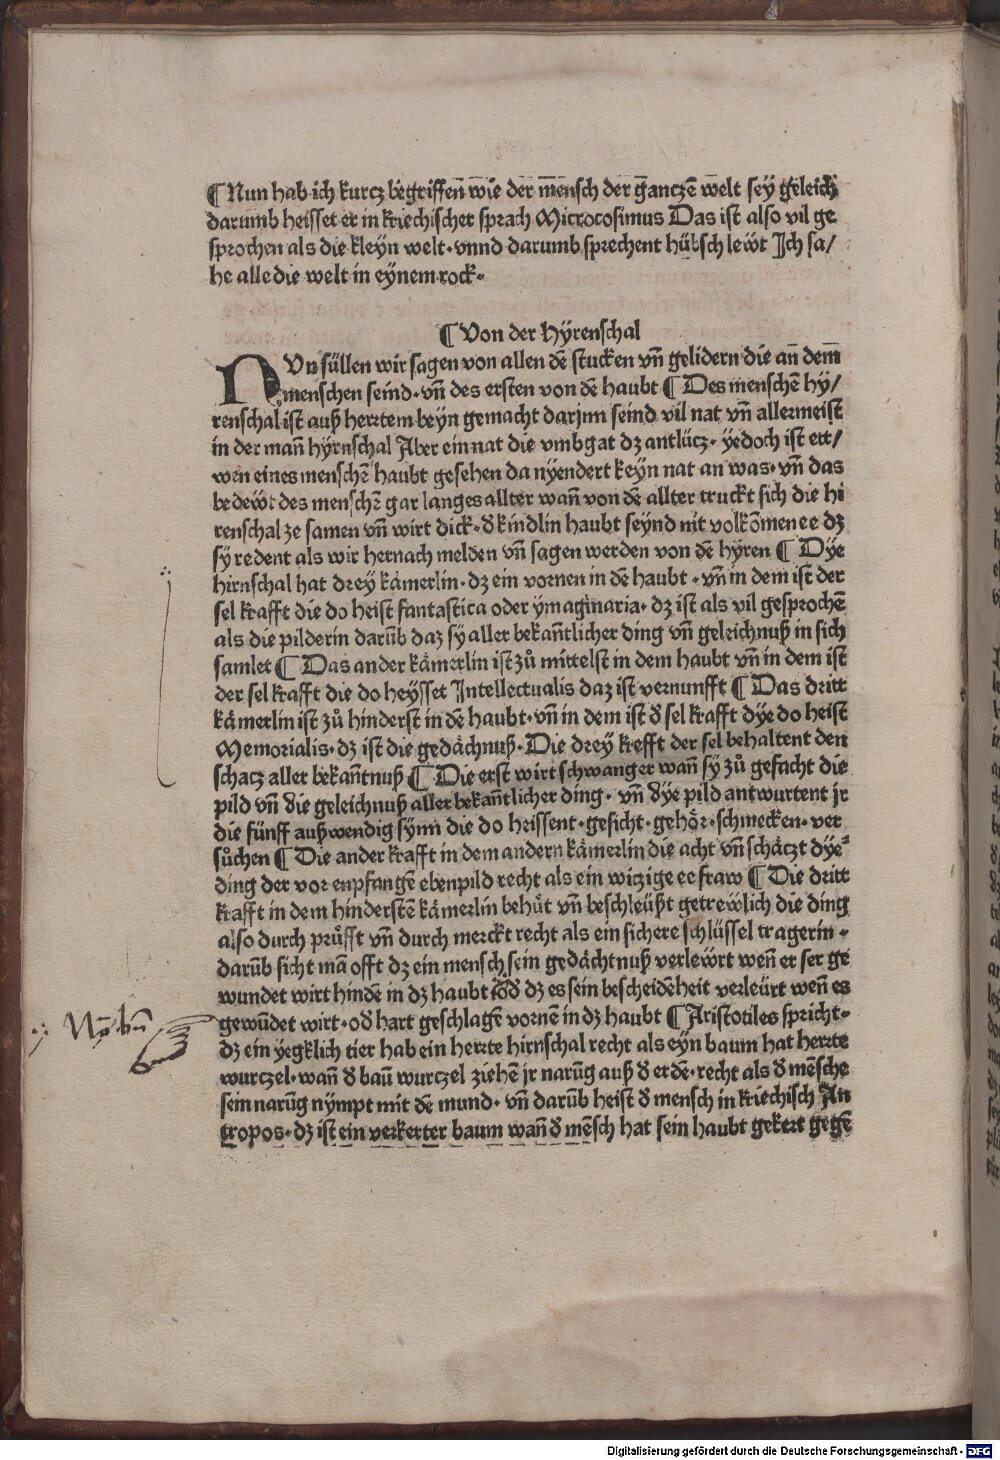 ¶ Nun hab ich kurcz begriffen wie der mensch der ganczē welt sey geleich
darumb heisset er in kriechischer sprach Microcosimus Das ist also vil ge
sprochen als die kleyn welt· vnnd darumb sprechent hübsch lewt Ich sa/
he alle die welt in eynem rock·
¶ Von der Hÿrenschal
NUn süllen wir sagen von allen dē stucken vñ gelidern die an dem
menschen seind· vñ des ersten von dē haubt ¶ Des menschē hy/
renschal ist auß herttem beyn gemacht darjnn seind vil nat vñ allermeist
in der mañ hÿrnschal Aber ein nat die vmbgat dz antlücz· yedoch ist ett/
wen eines menschē haubt gesehen da nyendert keyn nat an was· vñ das
bedewt des menschē gar langes allter wañ von dē allter truckt sich die hi
renschal ze samen vñ wirt dick· đ kindlin haubt seynd nit volkōmen ee dz
sy redent als wir hernach melden vñ sagen werden von dē hÿren ¶ Dye
hirnschal hat drey kämerlin· dz ein vornen in dē haubt· vñ in dem ist der
sel krafft die do heist fantastica oder ymaginaria· dz ist als vil gesprochē
als die pilderin darūb daz sy aller bekañtlicher ding vñ geleichnuß in sich
samlet ¶ Das ander kämerlin ist zů mittelst in dem haubt vñ in dem ist
der sel krafft die do heysset Intellectualis daz ist vernunfft ¶ Das dritt
kämerlin ist zů hinderst in dē haubt· vñ in dem ist đ sel krafft dye do heist
Memorialis· dz ist die gedächnuß· Die drey krefft der sel behaltent den
schacz aller bekañtnuß ¶ Die erst wirt schwanger wañ sy zů gefacht die
pild vñ die geleichnuß aller bekañtlicher ding· vñ dye pild antwurtent jr
die fünff außwendig synn die do heissent· gesicht· gehör· schmecken· ver
sůchen ¶ Die ander krafft in dem andern kämerlin die acht vñ schäczt dye
ding der vor enpfangē ebenpild recht als ein wiczige ee fraw ¶ Die dritt
krafft in dem hinderstē kämerlin behüt vñ beschleüßt getrewlich die ding
also durch prüfft vñ durch merckt recht als ein sichere schlüssel tragerin·
darūb sicht mā offt dz ein mensch sein gedächtnuß verlewrt weñ er ser ge
wundet wirt hindē in dz haubt ođ dz es sein bescheidēheit verleürt weñ es
gewūdet wirt· ođ hart geschlagē vornē in dz haubt ¶ Aristotiles spricht·
dz ein yegklich tier hab ein hertte hirnschal recht als eyn baum hat hertte
wurczel· wañ đ baū wurczel ziehen jr narūg auß đ erdē· recht als đ mēsche
sein narūg nympt mit dē mund· vñ darūb heist đ mensch in kriechisch An
tropos· dz ist ein verkerter baum wañ đ mēsch hat sein haubt gekert gegē
Digitalisierung gefördert durch die Deutsche Forschungsgemeinschaft - DFG